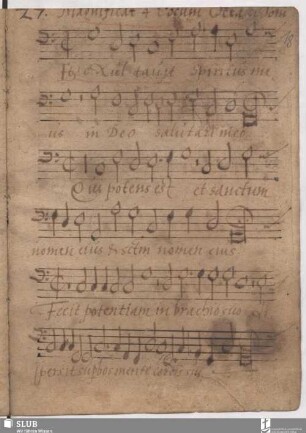 27. Magnificat 4 Vocum Octavi Toni
Et Exultavit Spiritus me
us in Deo salutari meo
Qui potens est et sanctum
nomen eius & sctm nomen eius
Fecit potentiam in brachio suo
spersit superbos mente cordis sui
SLUB